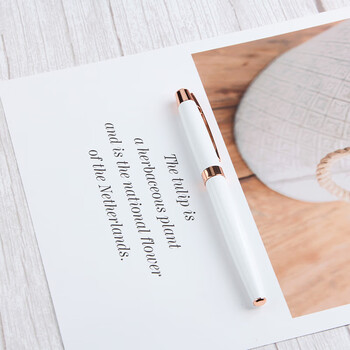 The tulip is
a herbaceous plant
and is the national flower
of the Netherlands.